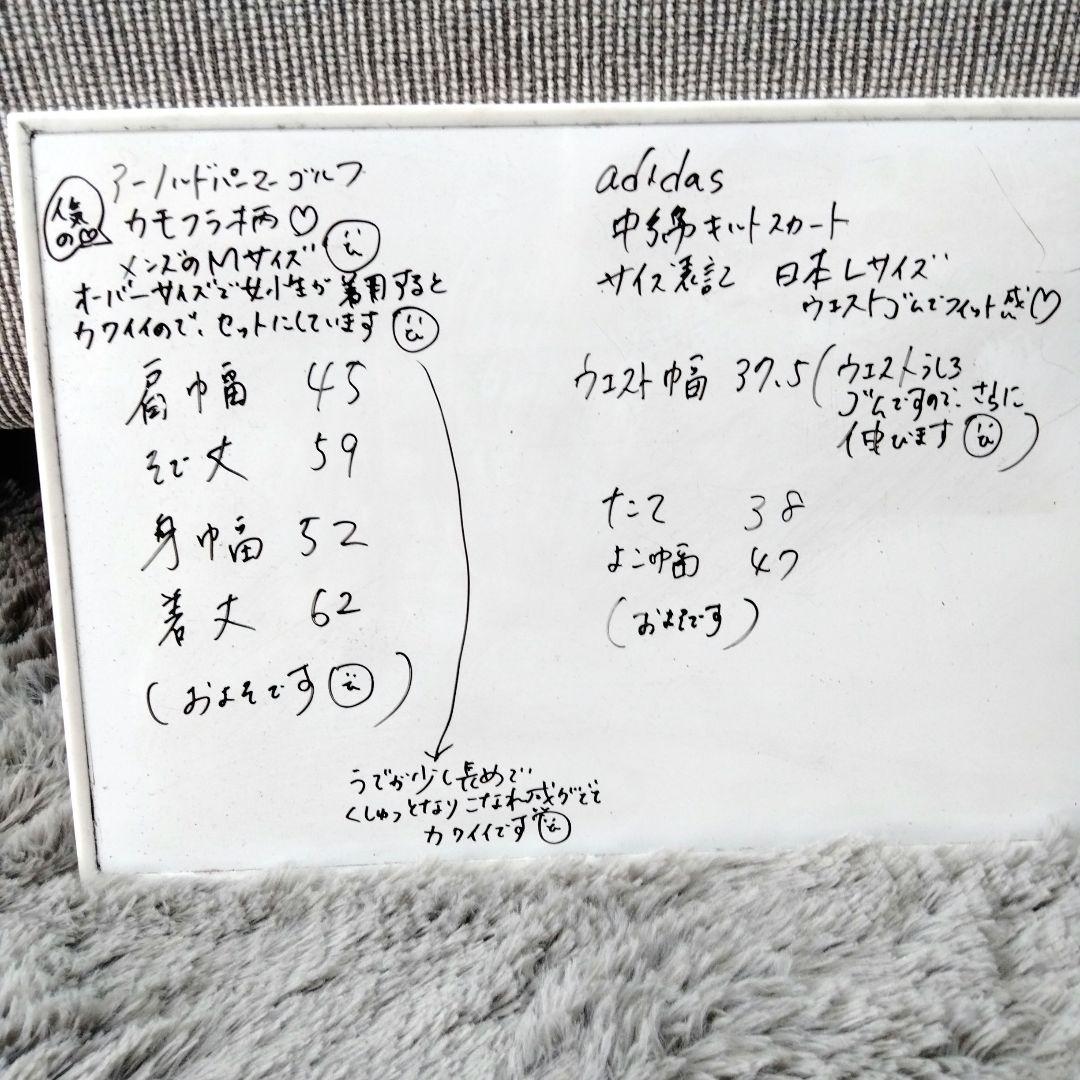 アーノルドパーマーゴルフ
人気の♡
カモフラ柄♡
メンズのMサイズ
オーバーサイズで女性が着用すると
カワイイので、セットにしています
肩巾幅 45
そで丈 59
身巾幅 52
着丈 62
(およそです)
うでが少し長めで
くしゅっとなりこなれ感がでて
カワイイです
adidas
中綿キルトスカート
サイズ表記 日本Lサイズ
ウエストゴムでフィット感♡
ウエスト巾幅 37.5(ウエストうしろ
ゴムですので、さらに
伸びます)
たて 38
よこ巾幅 47
(およそです)